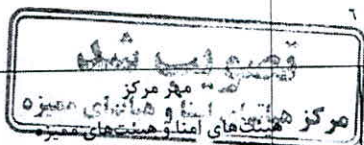 تصویب شد
مهر مرکز
مرکز هیئتهای امنا و هیئتهای ممیزه
هیئت‌های امنا و هیئت‌های ممیزه